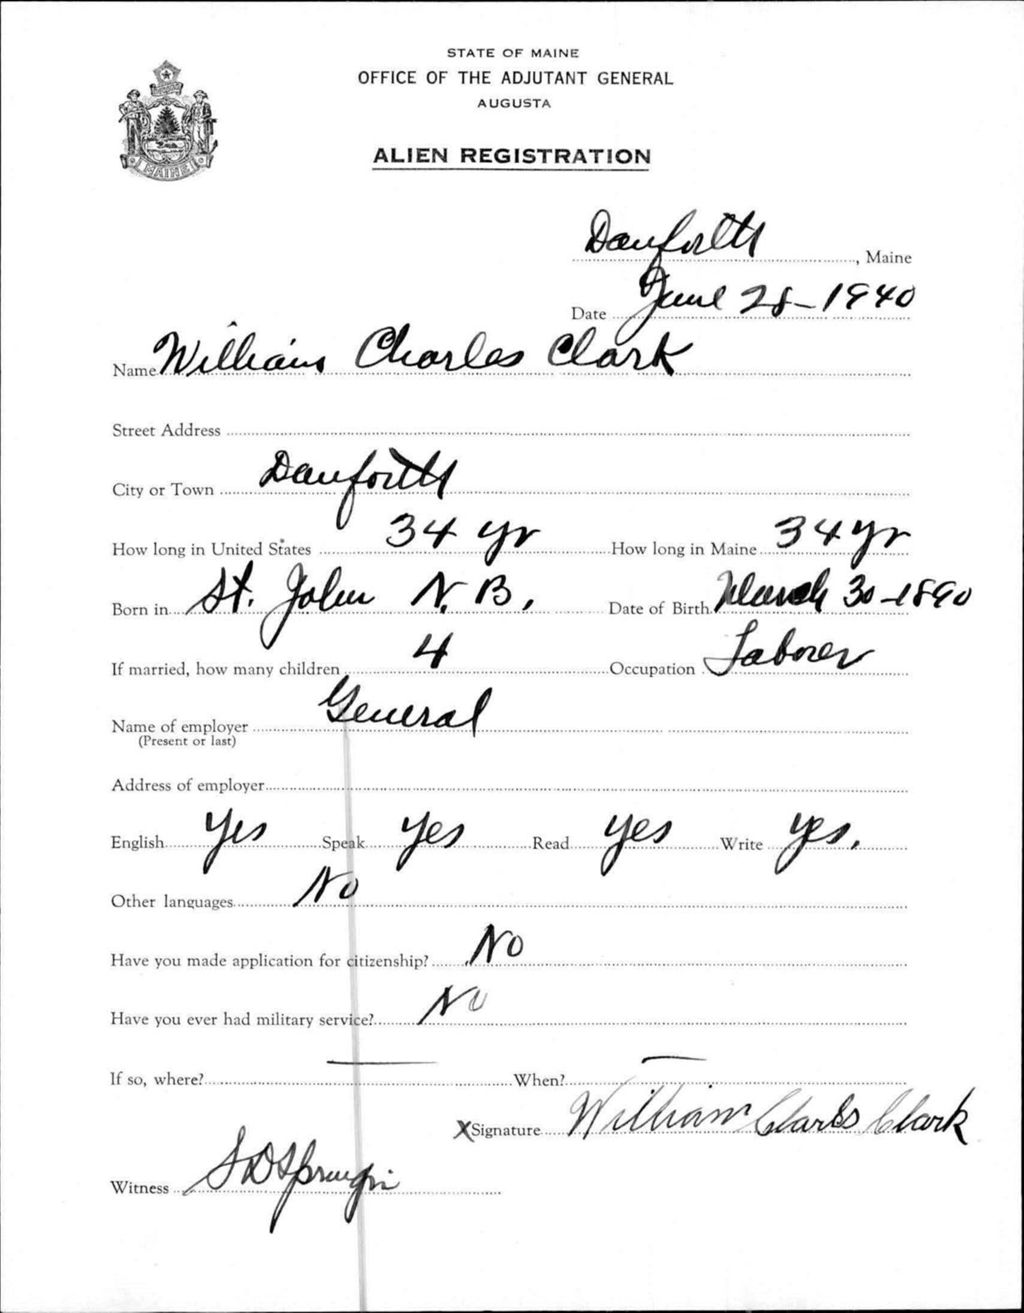 STATE OF MAINE
OFFICE OF THE ADJUTANT GENERAL
AUGUSTA
ALIEN REGISTRATION
MAINE
Danforth, Maine
Date June 28-1940
Name William Charles Clark
Street Address
City or Town Danforth
How long in United States 34 yr How long in Maine 34 yr
Born in St. John N.B. Date of Birth March 30-1890
If married, how many children 4 Occupation Laborer
Name of employer General
(Present or last)
Address of employer
English Yes Speak Yes Read Yes Write Yes.
Other languages No
Have you made application for citizenship? No
Have you ever had military service? No
If so, where? — When? —
X Signature William Charles Clark
Witness